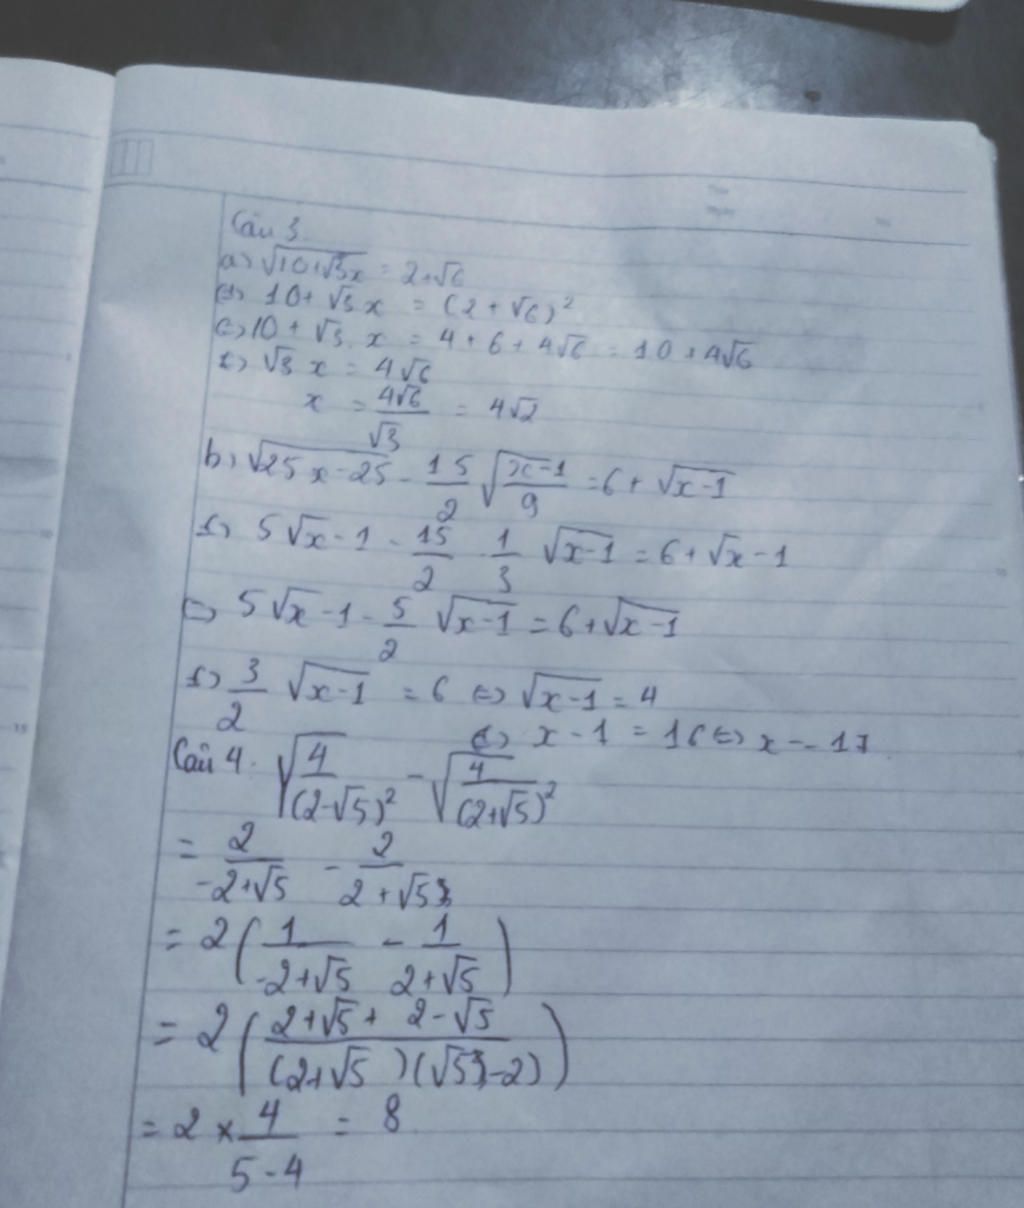 Câu 3
a) √(10+√3x) = 2+√6
<=> 10+√3x = (2+√6)²
<=> 10+√3.x = 4+6+4√6 = 10+4√6
<=> √3 x = 4√6
x = 4√6/√3 = 4√2
b) √(25x-25) - 15/2 √((x-1)/9) = 6+√(x-1)
<=> 5√x-1 - 15/2 . 1/3 √(x-1) = 6+√x-1
<=> 5√x-1 - 5/2 √(x-1) = 6+√(x-1)
<=> 3/2 √(x-1) = 6 <=> √(x-1) = 4
<=> x-1 = 16 <=> x = 17
Câu 4. √(4/(2-√5)²) - √(4/(2+√5)²)
= 2/(-2+√5) - 2/(2+√5)
= 2(1/(-2+√5) - 1/(2+√5))
= 2((2+√5+2-√5)/((2+√5)(√5-2)))
= 2 × 4/(5-4) = 8